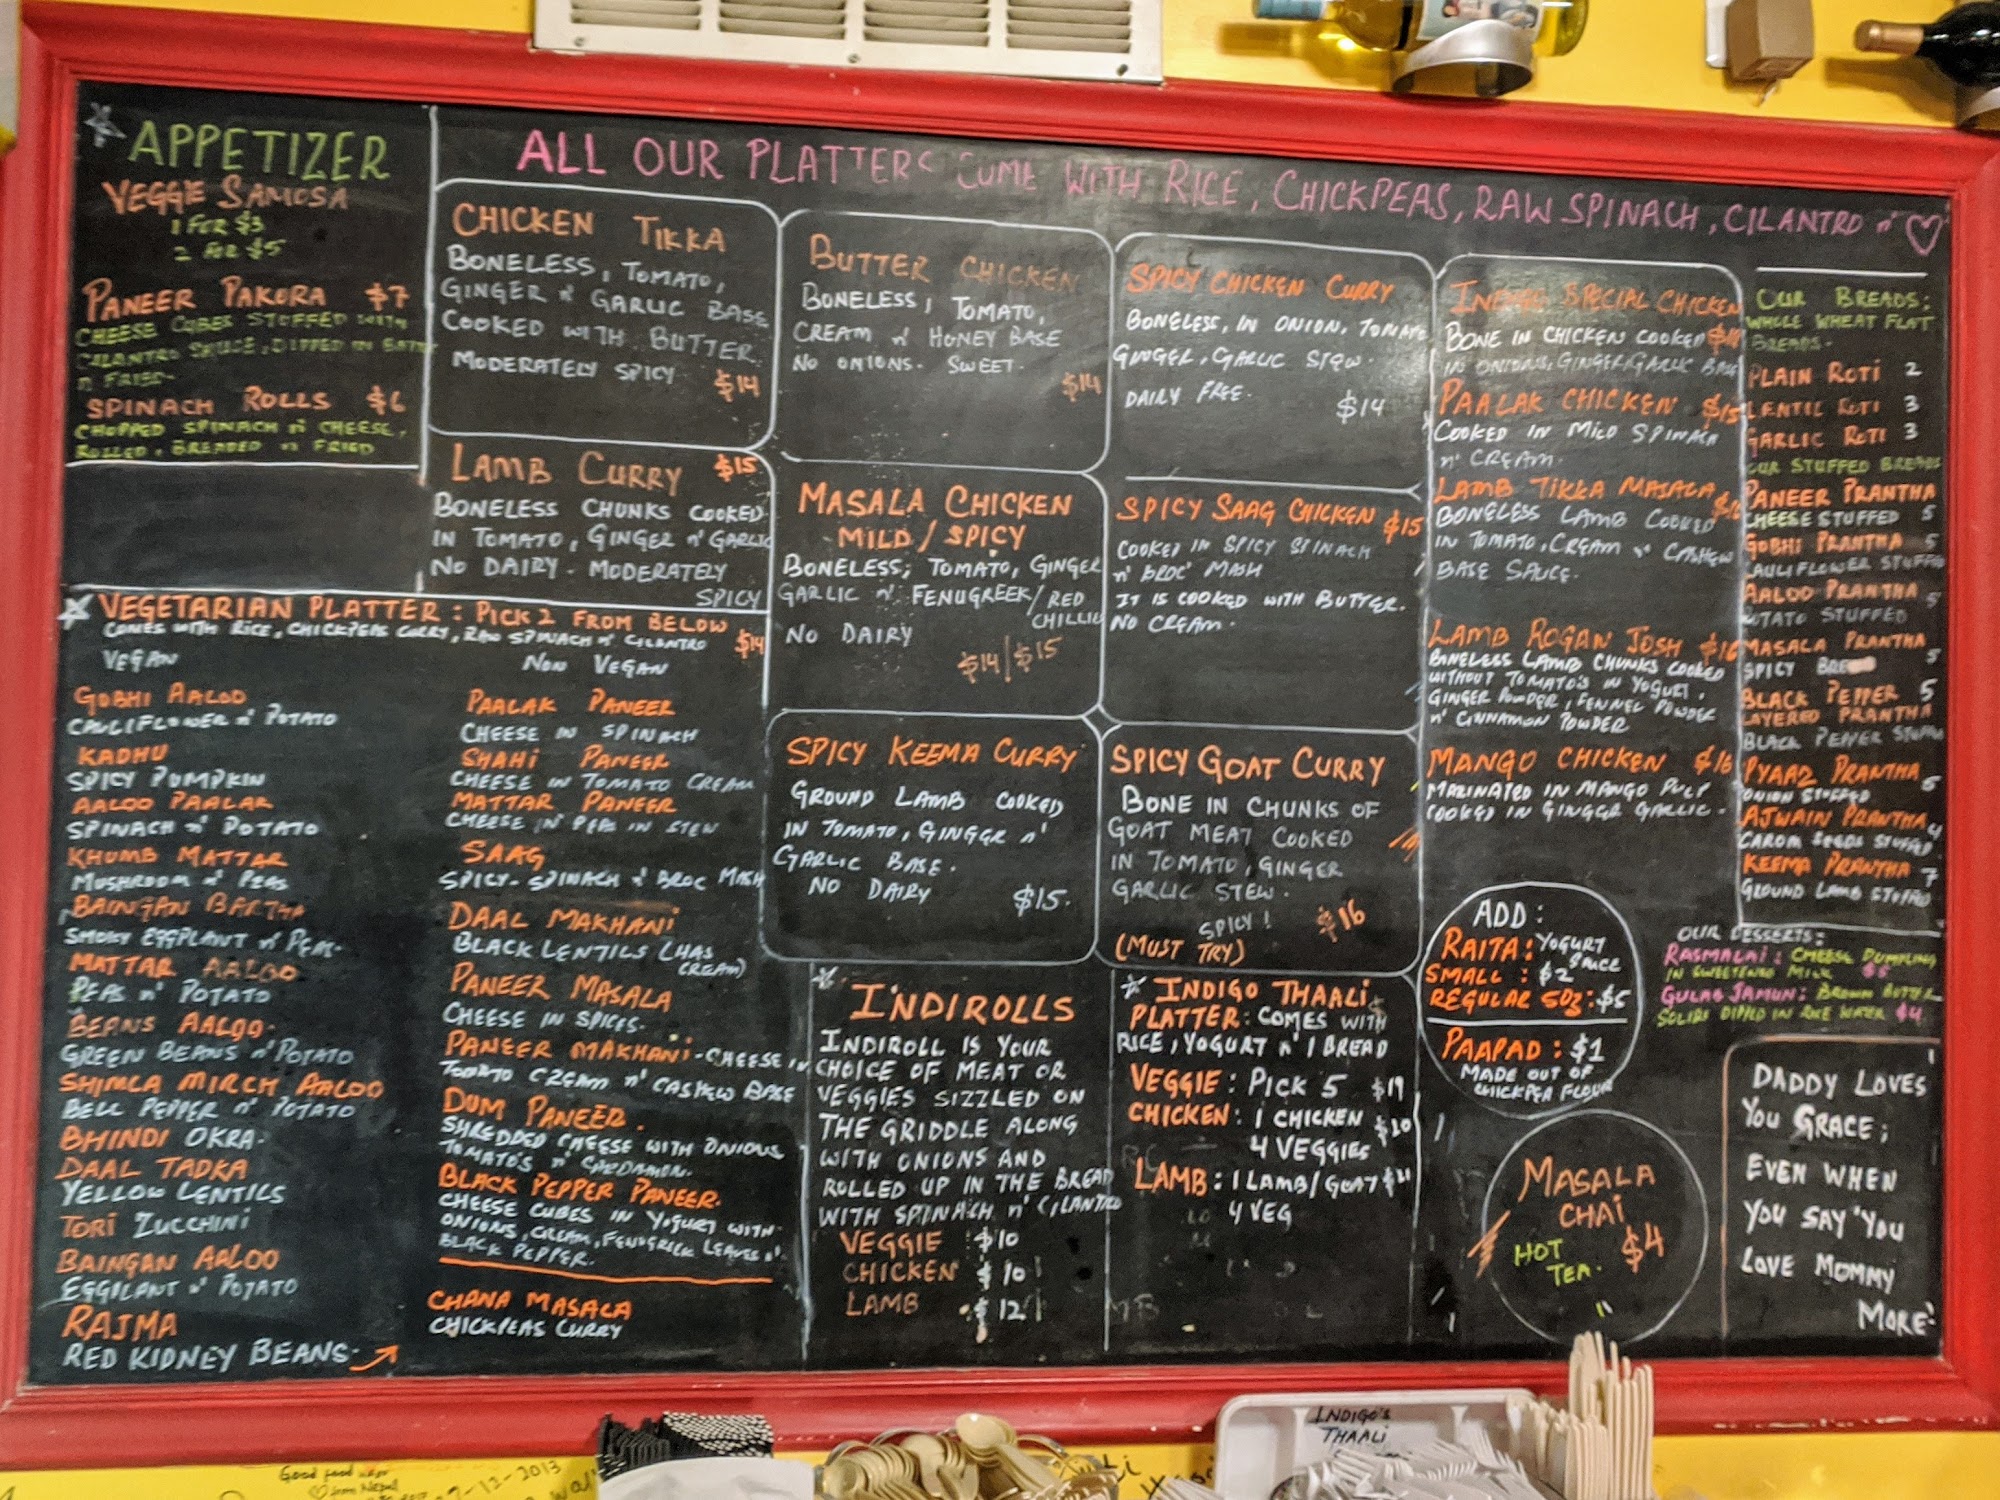 APPETIZER
VEGGIE SAMOSA
1 FOR $3
2 FOR $5
PANEER PAKORA $7
CHEESE CUBES STUFFED WITH
CILANTRO SAUCE, DIPPED IN
n' FRIED.
SPINACH ROLLS $6
CHOPPED SPINACH n' CHEESE,
ROLLED, BREADED n' FRIED
ALL OUR PLATTERS COME WITH RICE, CHICKPEAS, RAW SPINACH, CILANTRO n' ♡
CHICKEN TIKKA
BONELESS, TOMATO,
GINGER n' GARLIC BASE
COOKED WITH BUTTER
MODERATELY SPICY $14
LAMB CURRY $15
BONELESS CHUNKS COOKED
IN TOMATO, GINGER n' GARLIC
NO DAIRY. MODERATELY
SPICY
BUTTER CHICKEN
BONELESS, TOMATO,
CREAM n' HONEY BASE
NO ONIONS. SWEET.
$14
MASALA CHICKEN
MILD / SPICY
BONELESS, TOMATO, GINGER
GARLIC n' FENUGREEK / RED
CHILLIE
NO DAIRY
$14/$15
SPICY KEEMA CURRY
GROUND LAMB COOKED
IN TOMATO, GINGER n'
GARLIC BASE.
NO DAIRY $15.
SPICY CHICKEN CURRY
BONELESS, IN ONION, TOMATO
GINGER, GARLIC STEW.
DAIRY FREE. $14
SPICY SAAG CHICKEN $15
COOKED IN SPICY SPINACH
n' BROC' MASH
IT IS COOKED WITH BUTTER.
NO CREAM.
SPICY GOAT CURRY
BONE IN CHUNKS OF
GOAT MEAT COOKED
IN TOMATO, GINGER
GARLIC STEW.
SPICY!
(MUST TRY) $16
INDIGO SPECIAL CHICKEN
BONE IN CHICKEN COOKED
IN ONIONS, GINGER, GARLIC BASE
PAALAK CHICKEN $15
COOKED IN MILD SPINACH
n' CREAM.
LAMB TIKKA MASALA $16
BONELESS LAMB COOKED
IN TOMATO, CREAM n' CASHEW
BASE SAUCE.
LAMB ROGAN JOSH $16
BONELESS LAMB CHUNKS COOKED
WITHOUT TOMATO'S IN YOGURT,
GINGER POWDER, FENNEL POWDER
n' CINNAMON POWDER
MANGO CHICKEN $16
MARINATED IN MANGO PULP
COOKED IN GINGER GARLIC.
OUR BREADS:
WHOLE WHEAT FLAT
BREADS.
PLAIN ROTI 2
LENTIL ROTI 3
GARLIC ROTI 3
OUR STUFFED BREADS
PANEER PRANTHA
CHEESE STUFFED 5
GOBHI PRANTHA 5
CAULIFLOWER STUFFED
AALOO PRANTHA 5
POTATO STUFFED
MASALA PRANTHA 5
SPICY BREAD
BLACK PEPPER 5
LAYERED PRANTHA
BLACK PEPPER STUFFED
PYAAZ PRANTHA 5
ONION STUFFED
AJWAIN PRANTHA 4
CAROM SEEDS STUFFED
KEEMA PRANTHA 7
GROUND LAMB STUFFED
VEGETARIAN PLATTER: PICK 2 FROM BELOW
COMES WITH RICE, CHICKPEAS CURRY, RAW SPINACH n' CILANTRO $14
VEGAN
GOBHI AALOO
CAULIFLOWER n' POTATO
KADHU
SPICY PUMPKIN
AALOO PAALAK
SPINACH n' POTATO
KHUMB MATTAR
MUSHROOM n' PEAS
BAINGAN BARTHA
SMOKY EGGPLANT n' PEAS.
MATTAR AALOO
PEAS n' POTATO
BEANS AALOO.
GREEN BEANS n' POTATO
SHIMLA MIRCH AALOO
BELL PEPPER n' POTATO
BHINDI OKRA.
DAAL TADKA
YELLOW LENTILS
TORI ZUCCHINI
BAINGAN AALOO
EGGPLANT n' POTATO
RAJMA
RED KIDNEY BEANS.
NON VEGAN
PAALAK PANEER
CHEESE IN SPINACH
SHAHI PANEER
CHEESE IN TOMATO CREAM
MATTAR PANEER
CHEESE n' PEAS IN STEW
SAAG
SPICY-SPINACH n' BROC MASH
DAAL MAKHANI
BLACK LENTILS (HAS
CREAM)
PANEER MASALA
CHEESE IN SPICES.
PANEER MAKHANI-CHEESE IN
TOMATO CREAM n' CASHEW BASE
DUM PANEER.
SHREDDED CHEESE WITH ONIONS
TOMATO'S n' CARDAMON.
BLACK PEPPER PANEER.
CHEESE CUBES IN YOGURT WITH
ONIONS, CREAM, FENUGRICK LEAVES n'
BLACK PEPPER.
CHANA MASALA
CHICKPEAS CURRY
INDIROLLS
INDIROLL IS YOUR
CHOICE OF MEAT OR
VEGGIES SIZZLED ON
THE GRIDDLE ALONG
WITH ONIONS AND
ROLLED UP IN THE BREAD
WITH SPINACH n' CILANTRO
VEGGIE $10
CHICKEN $10
LAMB $12
INDIGO THAALI
PLATTER: COMES WITH
RICE, YOGURT n' 1 BREAD
VEGGIE: PICK 5 $19
CHICKEN: 1 CHICKEN $20
4 VEGGIES
LAMB: 1 LAMB/GOAT $21
4 VEG
ADD:
RAITA: YOGURT
SAUCE
SMALL: $2
REGULAR 5OZ: $5
PAAPAD: $1
MADE OUT OF
CHICKPEA FLOUR
MASALA
CHAI
HOT
TEA. $4
OUR DESSERTS:
RASMALAI: CHEESE DUMPLING
IN SWEETENED MILK $5
GULAB JAMUN: BROWN BUTTER
SOLIDS DIPPED IN ROSE WATER $4
DADDY LOVES
YOU GRACE;
EVEN WHEN
YOU SAY 'YOU
LOVE MOMMY
MORE'
INDIGO'S
THAALI
Good food
from Nepal
-12-2013